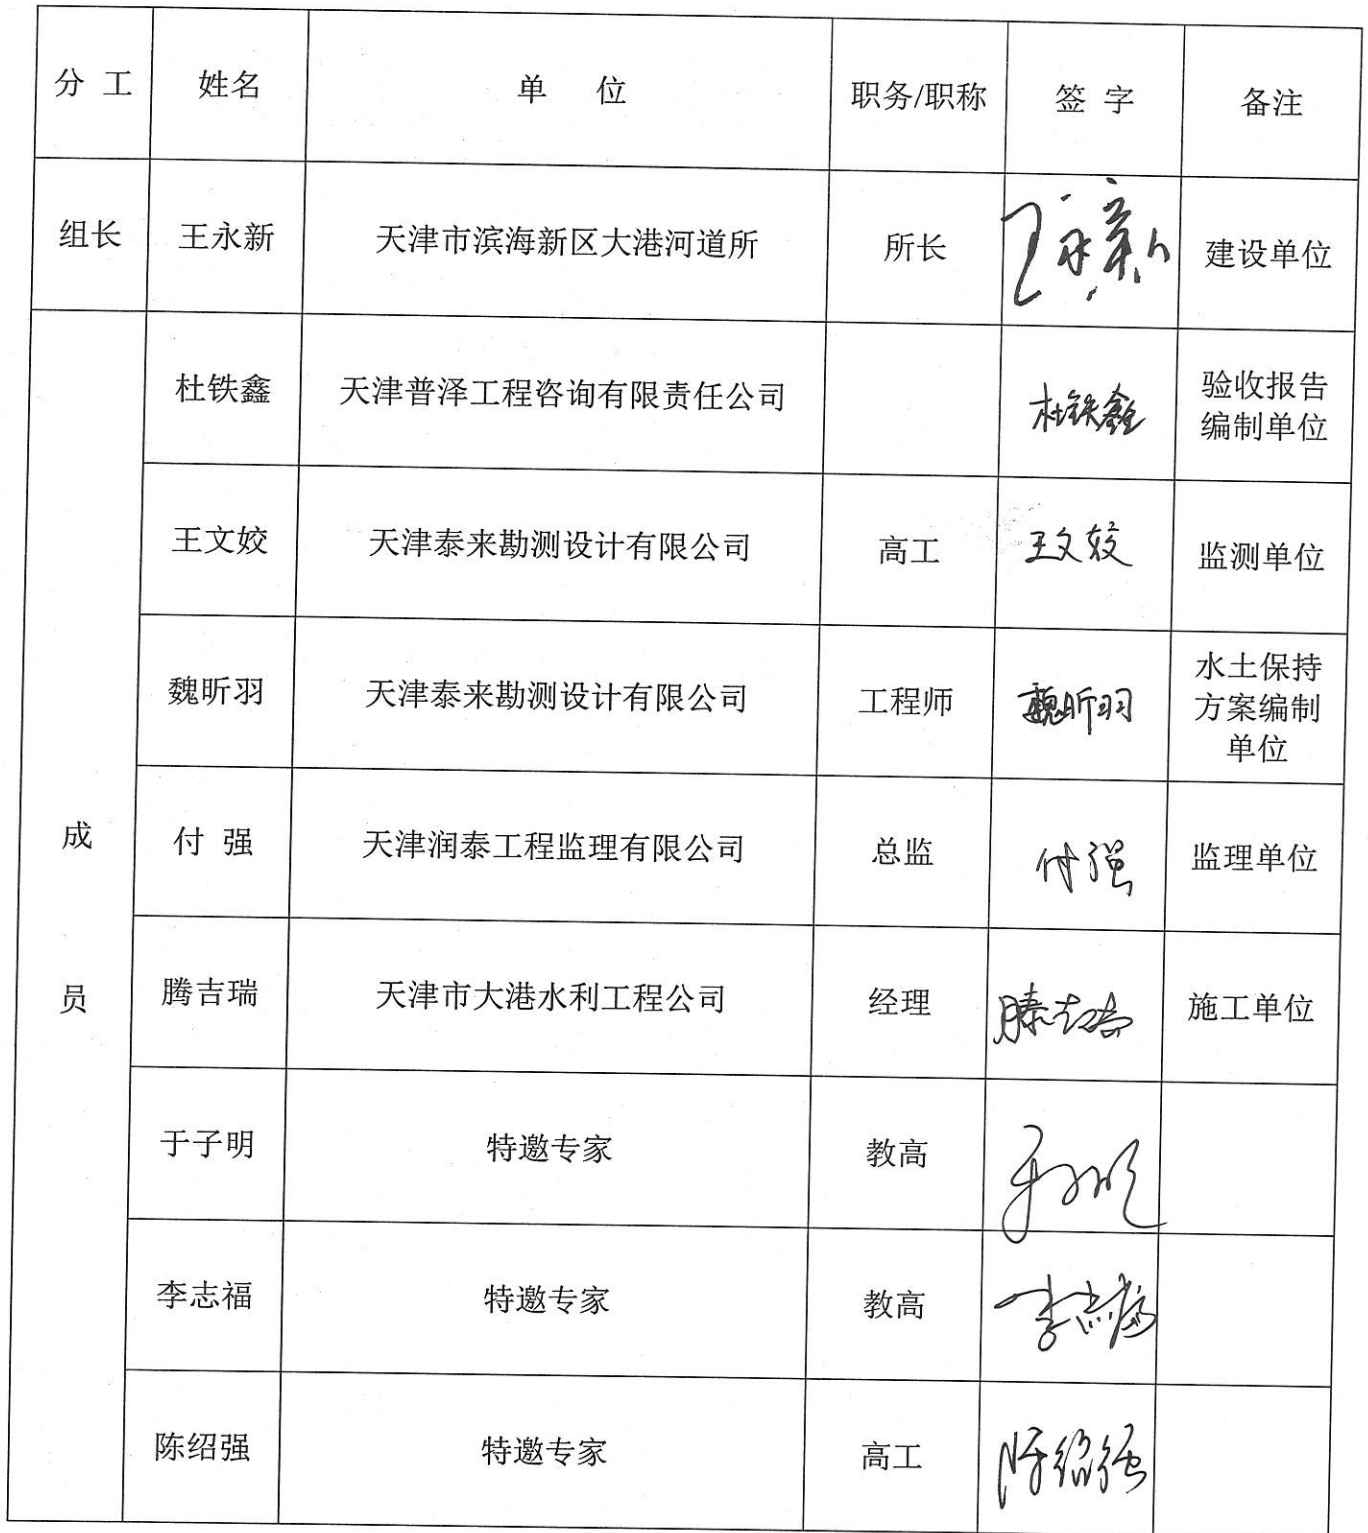 分 工 姓名 单 位 职务/职称 签 字 备注
组长 王永新 天津市滨海新区大港河道所 所长 王永新 建设单位
杜铁鑫 天津普泽工程咨询有限责任公司 杜铁鑫 验收报告
编制单位
王文姣 天津泰来勘测设计有限公司 高工 王文姣 监测单位
魏昕羽 天津泰来勘测设计有限公司 工程师 魏昕羽 水土保持
方案编制
单位
成
员
付 强 天津润泰工程监理有限公司 总监 付强 监理单位
腾吉瑞 天津市大港水利工程公司 经理 施工单位
于子明 特邀专家 教高 于子明
李志福 特邀专家 教高 李志福
陈绍强 特邀专家 高工 陈绍强